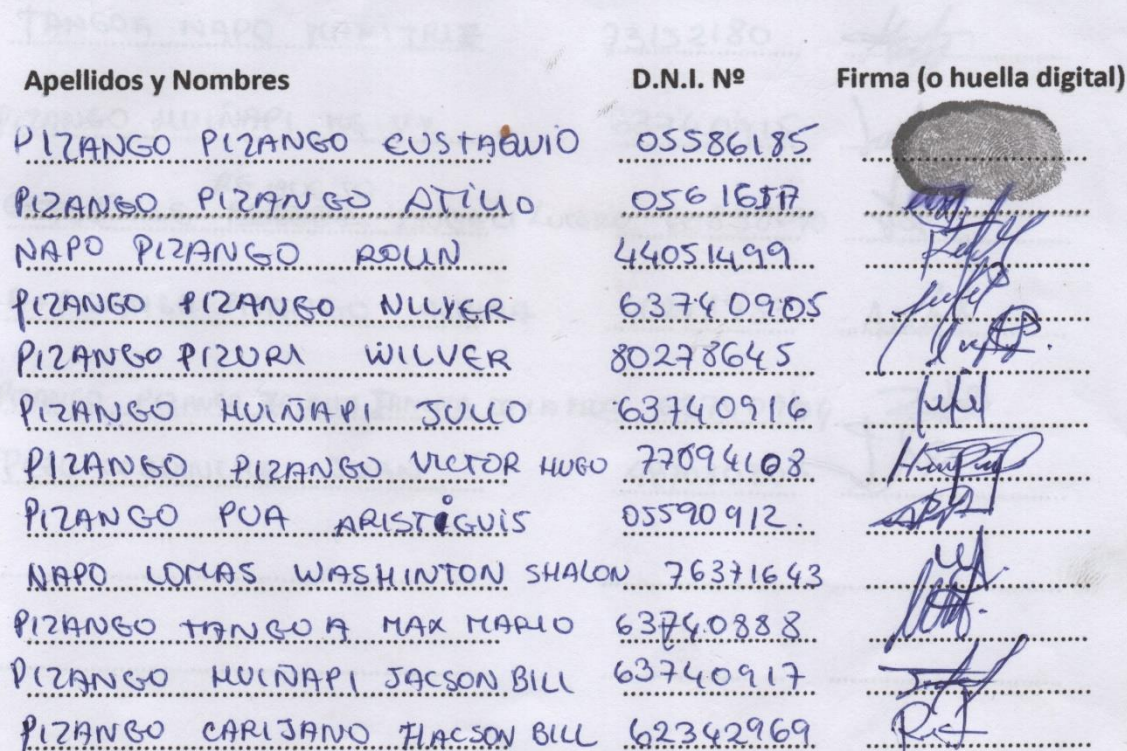 Apellidos y Nombres D.N.I. Nº Firma (o huella digital)
PIZANGO PIZANGO EUSTAQUIO 05586185
PIZANGO PIZANGO ATILIO
NAPO PIZANGO ROLIN 44051499
PIZANGO PIZANGO 63740905
PIZANGO PIZURI WILVER 80278645
PIZANGO HUIÑAPI JULIO 63740916
PIZANGO PIZANGO VICTOR HUGO 77094108
PIZANGO PUA 05590912
NAPO LOMAS WASHINTON SHALON 76371643
PIZANGO TANGOA MAX MARIO 63740888
PIZANGO HUIÑAPI JACSON BILL 63740917
PIZANGO CARIJANO BILL 62342969